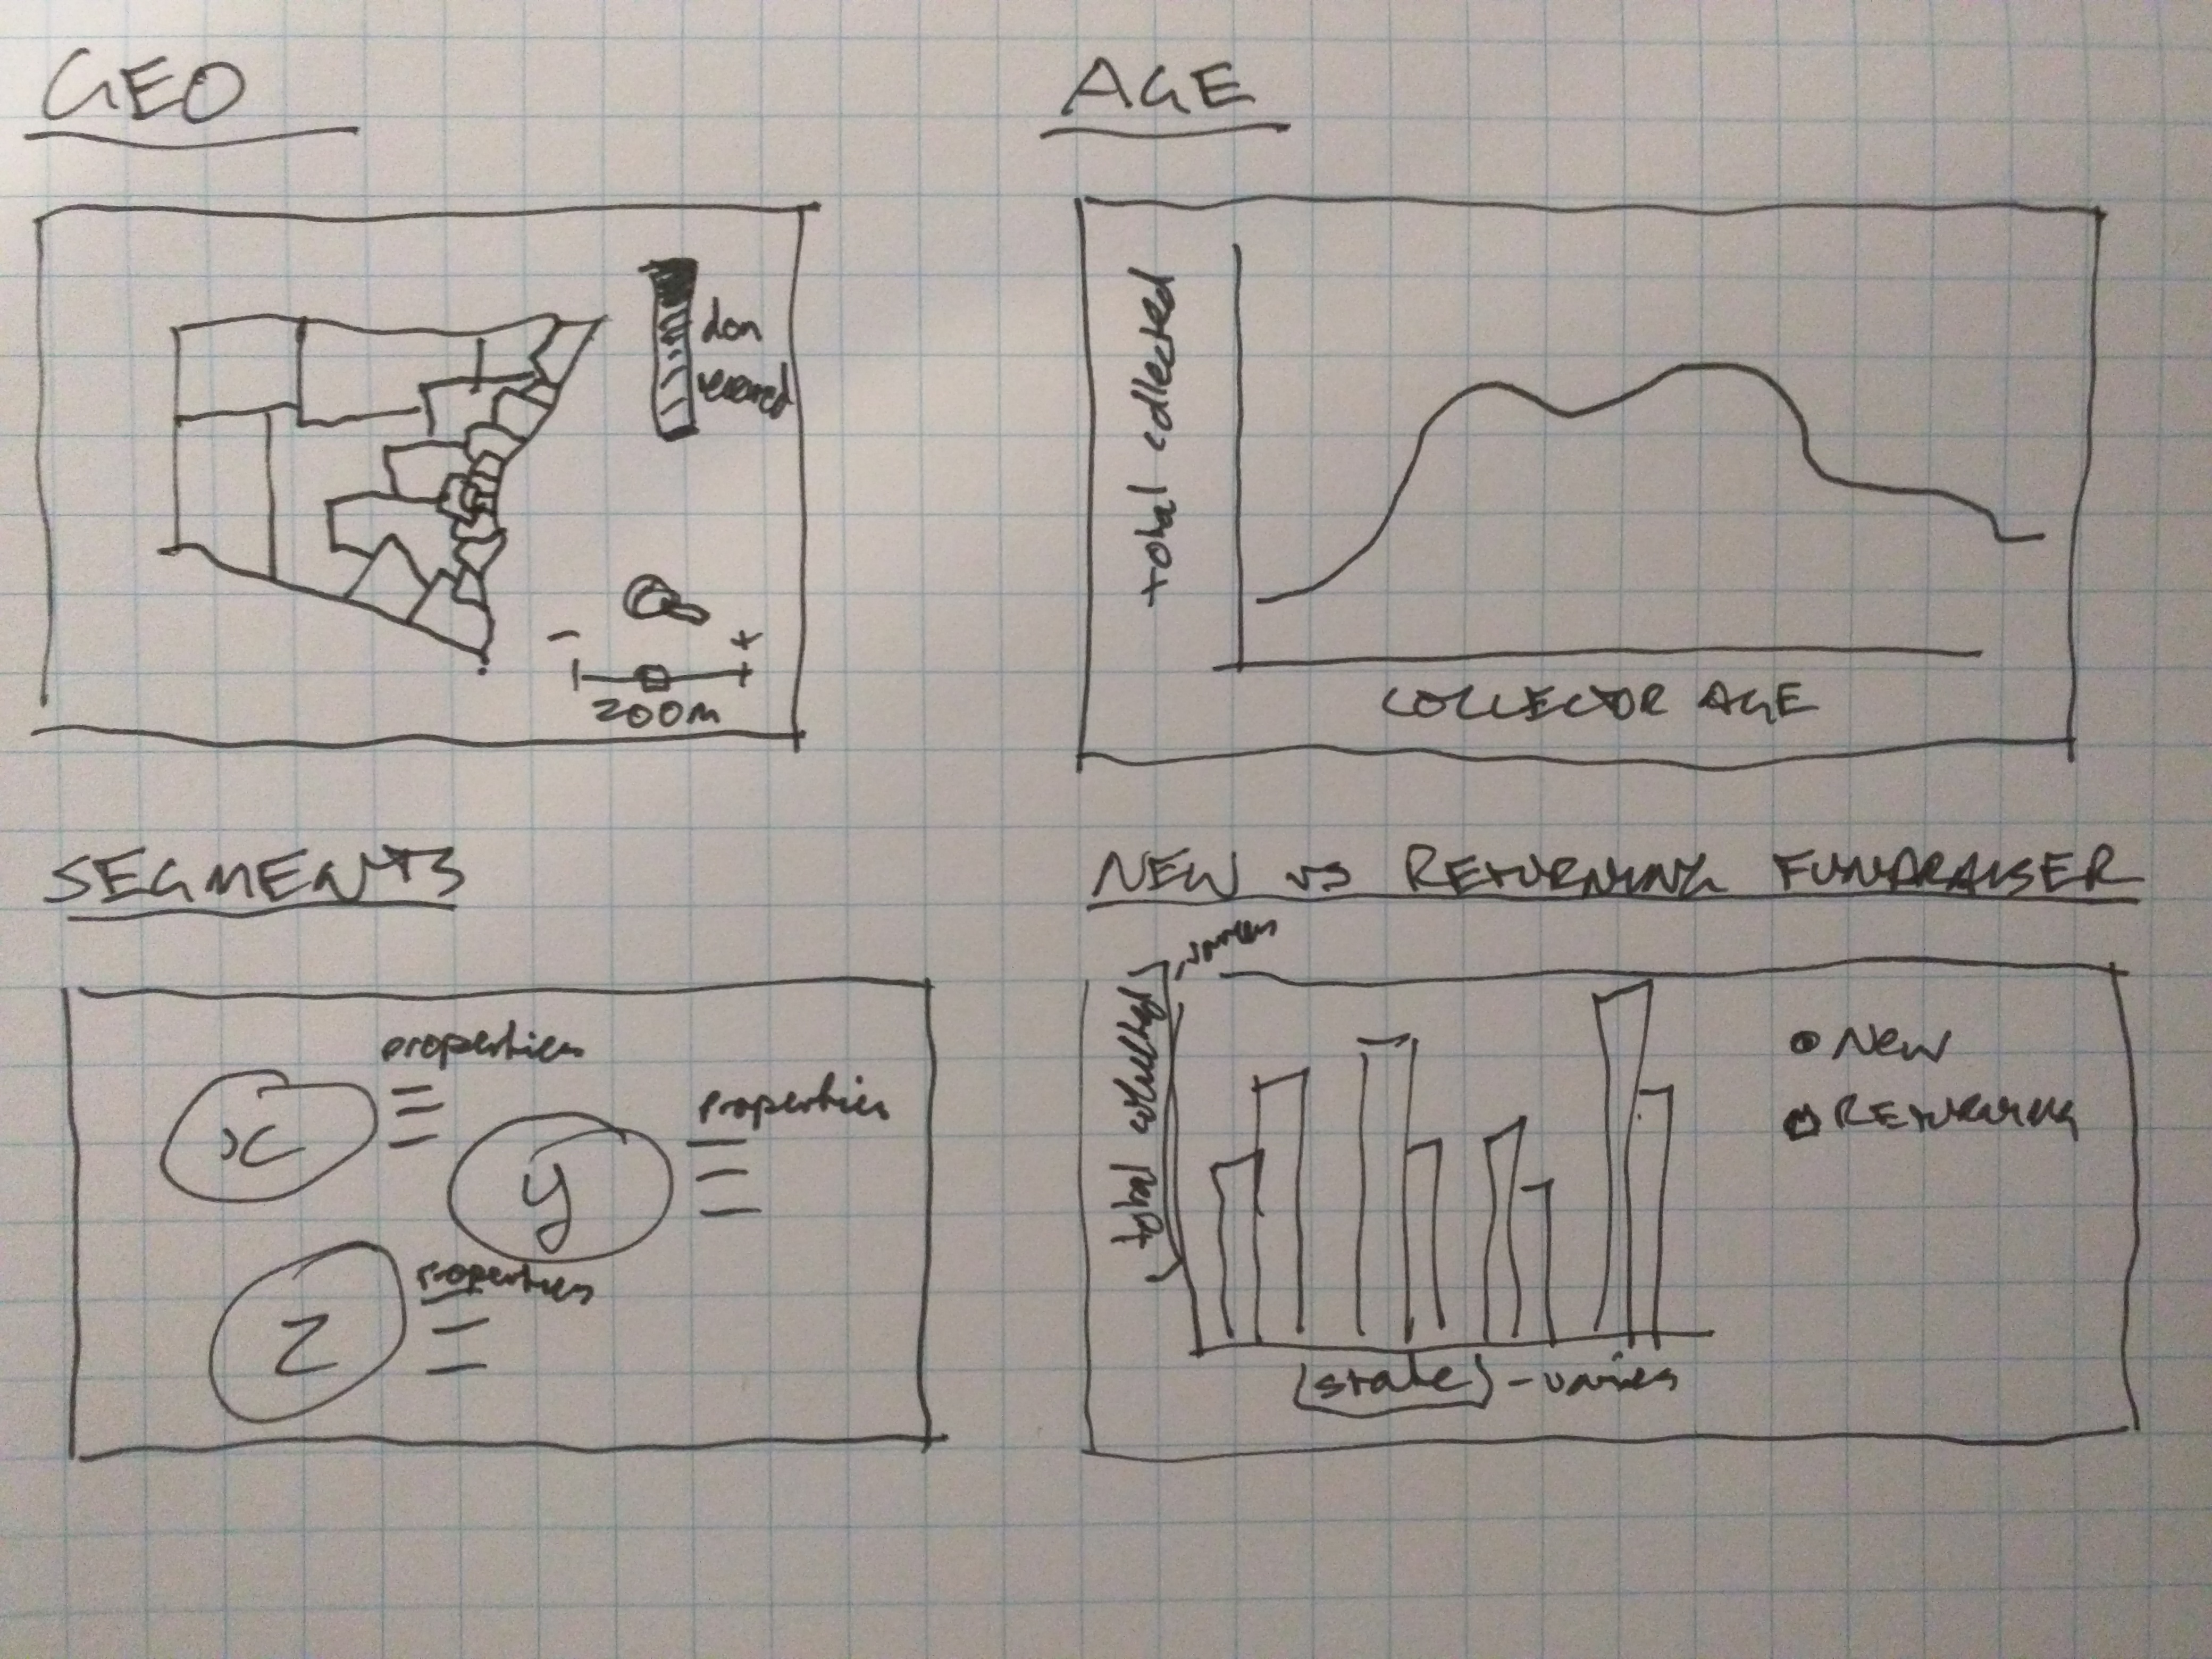 GEO
don
- +
200m
AGE
total collected
COLLECTOR AGE
SEGMENTS
properties
x
properties
y
properties
z
NEW vs RETURNING FUNDRAISER
varies
total collected
New
RETURNING
(state) - varies